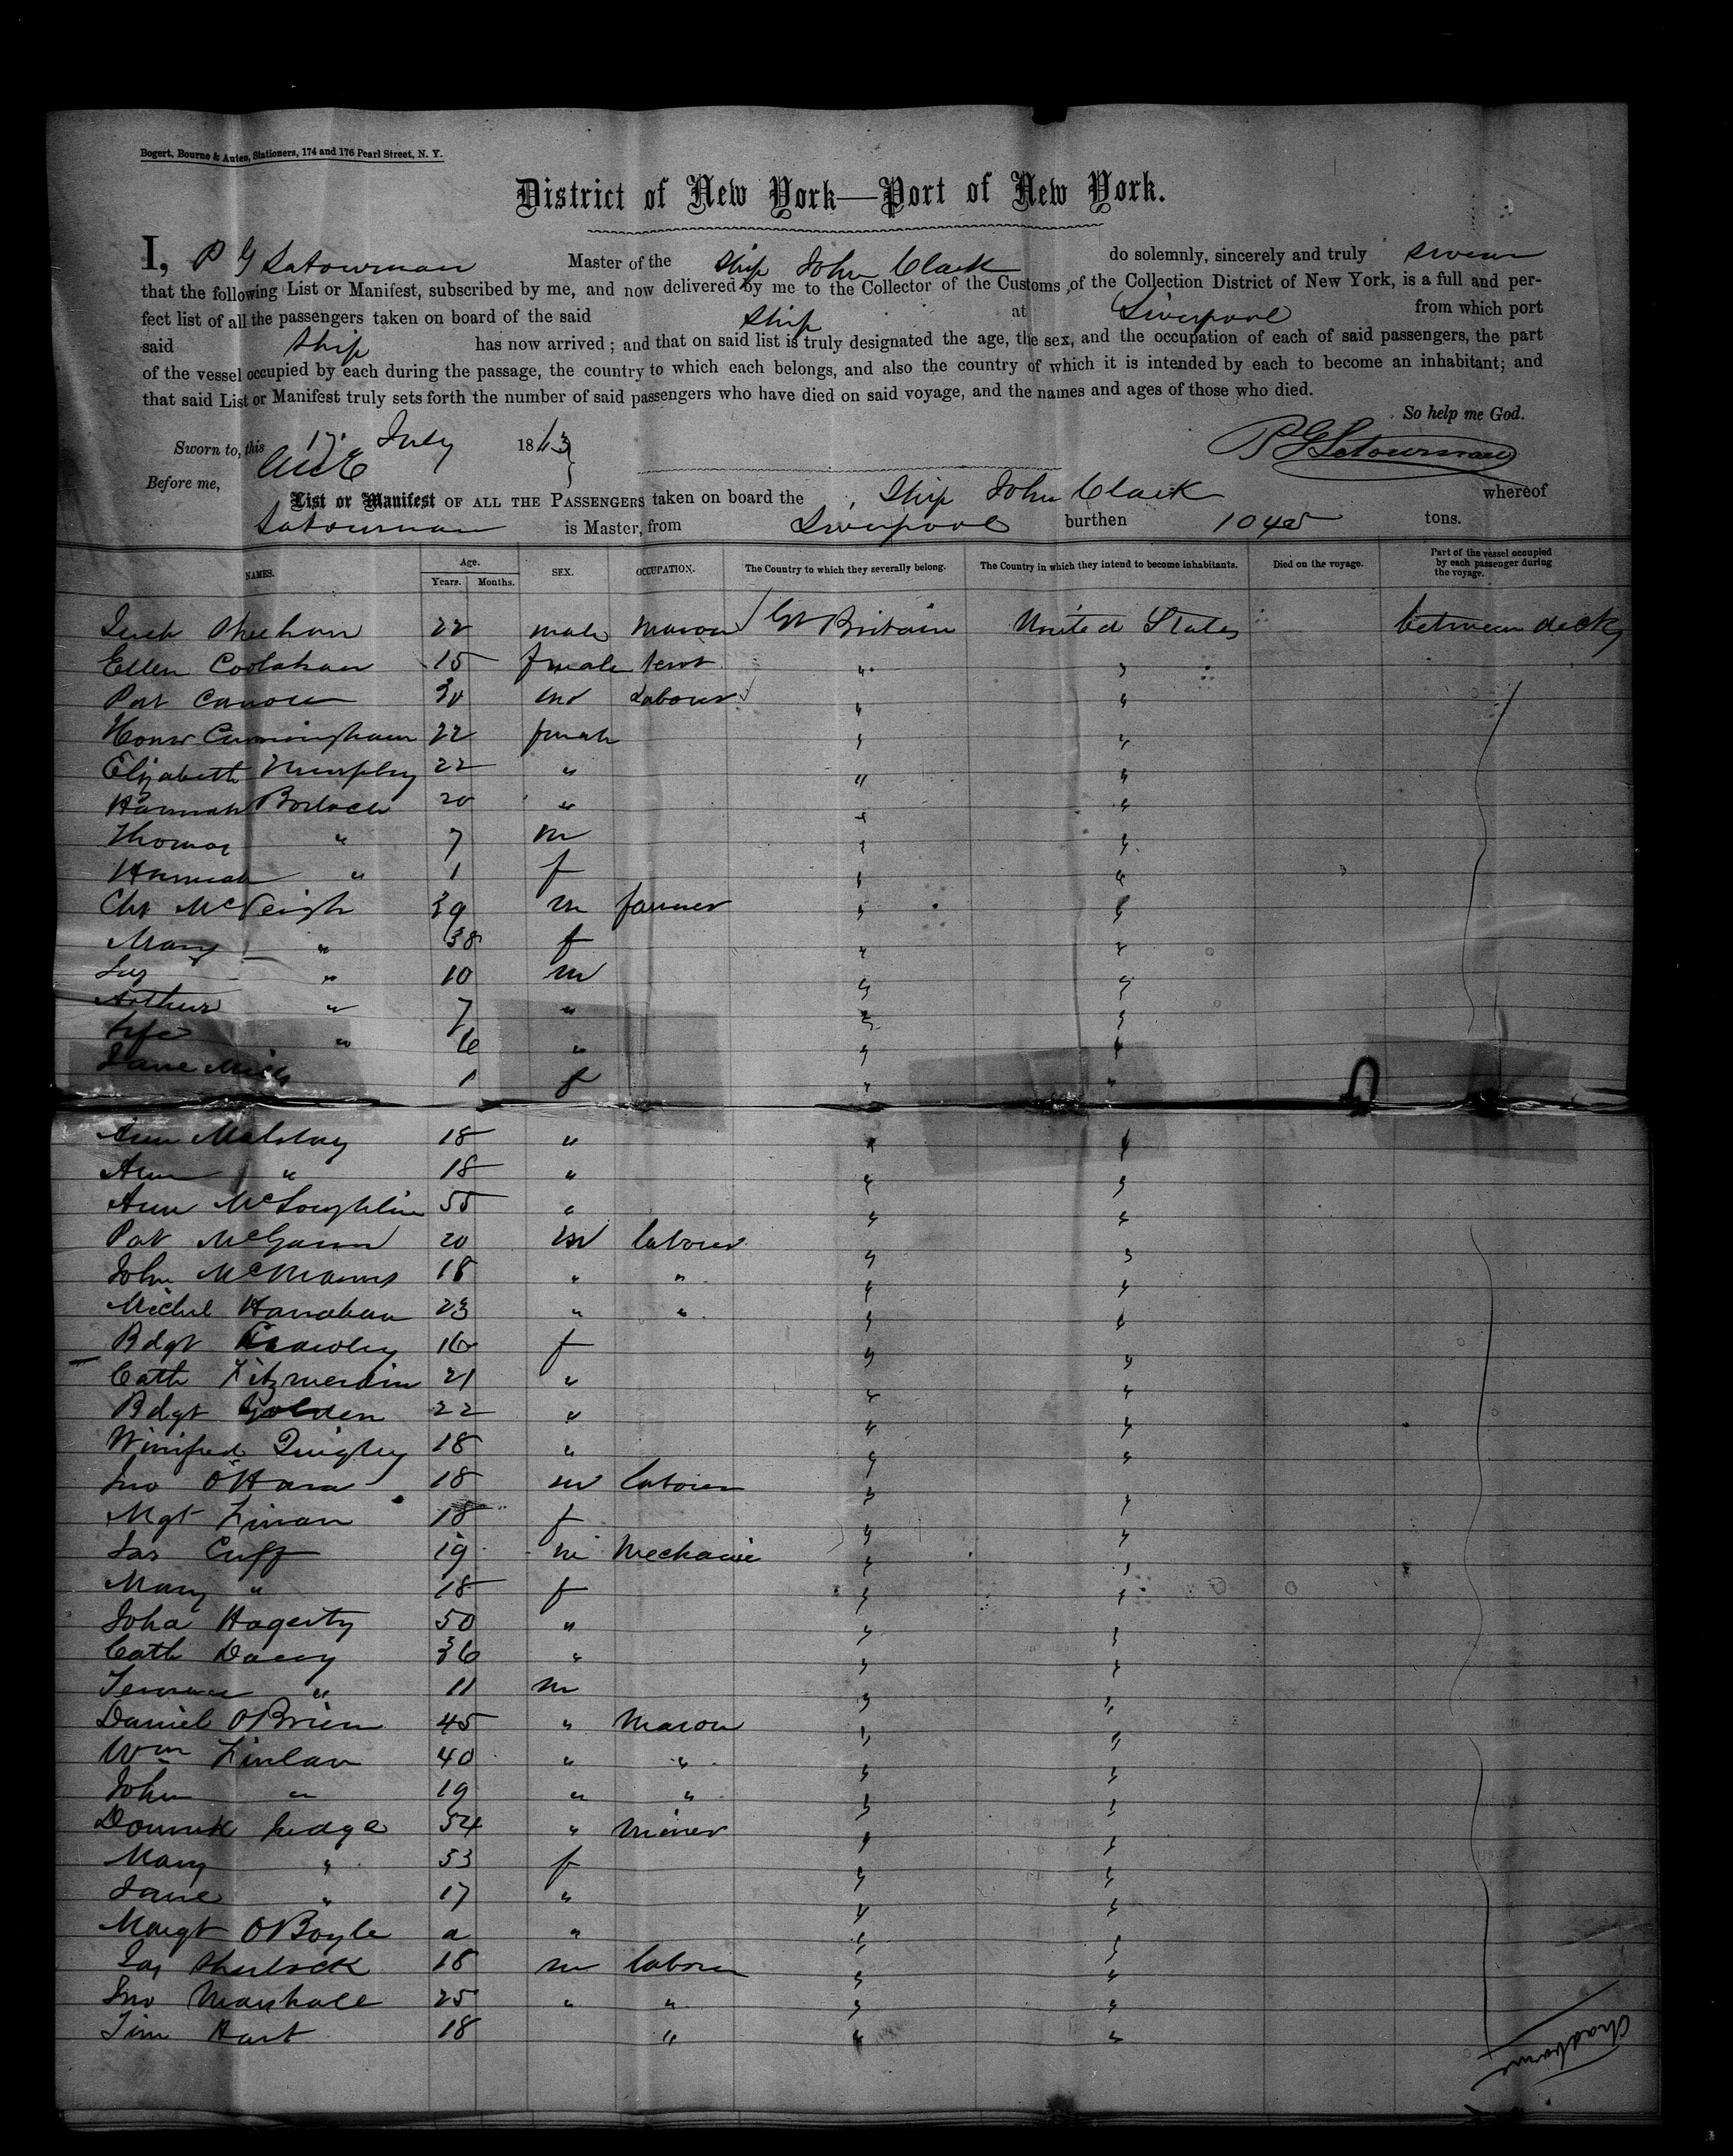 Bogert, Bourne & Auten, Stationers, 174 and 176 Pearl Street, N. Y.
District of New York—Port of New York.
I, P G Master of the Ship John Clark do solemnly, sincerely and truly swear
that the following List or Manifest, subscribed by me, and now delivered by me to the Collector of the Customs of the Collection District of New York, is a full and per-
fect list of all the passengers taken on board of the said Ship at Liverpool from which port
said Ship has now arrived; and that on said list is truly designated the age, the sex, and the occupation of each of said passengers, the part
of the vessel occupied by each during the passage, the country to which each belongs, and also the country of which it is intended by each to become an inhabitant; and
that said List or Manifest truly sets forth the number of said passengers who have died on said voyage, and the names and ages of those who died.
So help me God.
Sworn to, this 17 July 1863
Before me,
List or Manifest OF ALL THE PASSENGERS taken on board the Ship John Clark whereof
is Master, from Liverpool burthen tons.
NAMES. Age. Years. Months. SEX. OCCUPATION. The Country to which they severally belong. The Country in which they intend to become inhabitants. Died on the voyage. Part of the vessel occupied by each passenger during the voyage.
22 male mason Gt Britain United States between decks
Ellen Coolahan 15 female servt " "
Pat 30 m Labour " "
Honor Cunningham 22 female " "
Elizabeth Murphy 22 " " "
Hannah 20 " " "
Thomas " 7 m " "
Hannah " 1 f " "
Chs McVeigh 39 m farmer " "
Mary " 38 f " "
" 10 m " "
Arthur " 7 " " "
" 6 " " "
Jane 1 f " "
Ann 18 " " "
Ann " 18 " " "
Ann McLoughlin 55 " " "
Pat McGann 20 m labour " "
John McManus 18 " " " "
Michl Hanahan 23 " " " "
Bdgt Crawley 16 f " "
Cath 21 " " "
Bdgt Golden 22 " " "
Winifred Quigley 18 " " "
Jno O'Hara 18 m labour " "
Mgt 18 f " "
Jas Cuff 19 m Mechanic " "
Mary " 18 f " "
Joha Hagerty 50 " " "
Cath Dacey 36 " " "
" 11 m " "
Daniel OBrien 45 " mason " "
Wm Finlan 40 " " " "
John " 19 " " " "
Judge 54 " miner " "
Mary " 53 f " "
Jane " 17 " " "
Margt OBoyle a " " "
Jas Sherlock 18 m labour " "
Jno Marshall 25 " " " "
Tim Hart 18 " " "